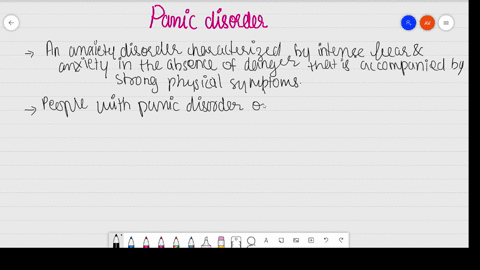 Panic disorder
→ An anxiety disorder characterized by intense fear &
anxiety in the absence of danger that is accompanied by
strong physical symptoms.
→ People with panic disorder